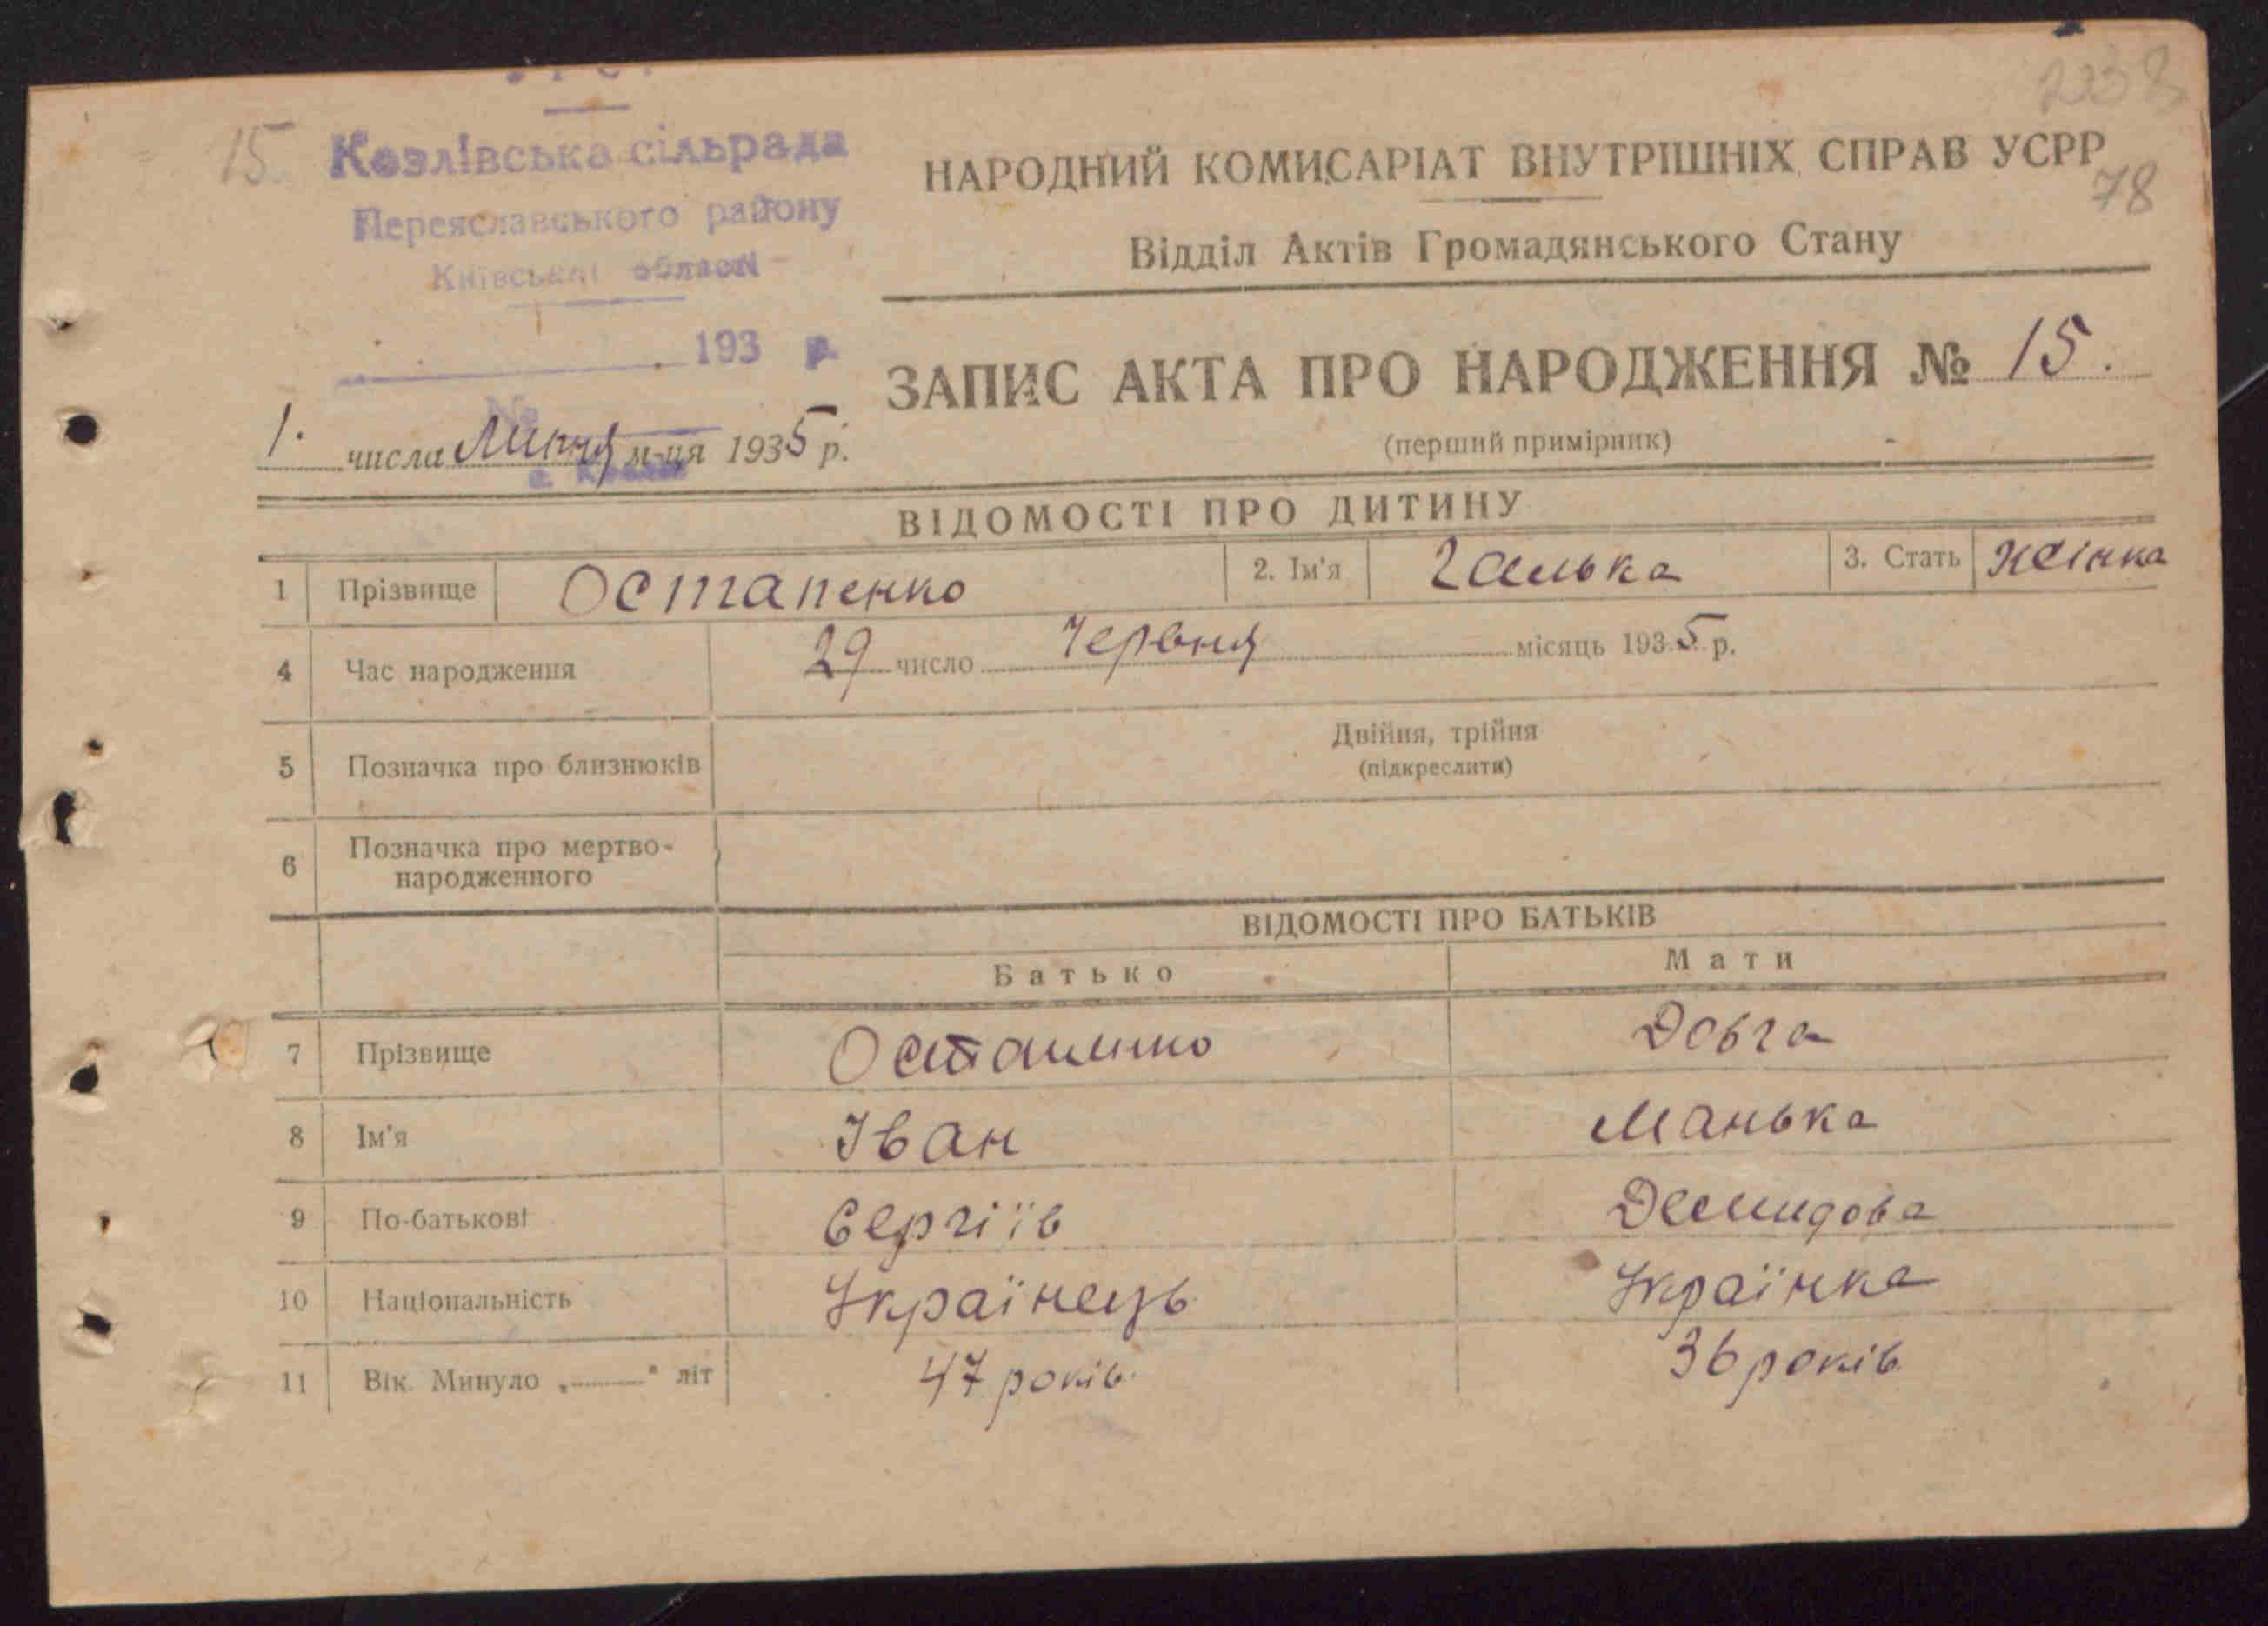 238
15
Козлівська сільрада
Переяславського району
Київської області
193 р.
№
НАРОДНИЙ КОМИСАРІАТ ВНУТРІШНІХ СПРАВ УСРР
78
Відділ Актів Громадянського Стану
ЗАПИС АКТА ПРО НАРОДЖЕННЯ № 15.
(перший примірник)
1. числа Липня м-ця 1935 р.
ВІДОМОСТІ ПРО ДИТИНУ
1 Прізвище Остапенко 2. Ім'я Галька 3. Стать Жінка
4 Час народження 29 число Червня місяць 1935 р.
5 Позначка про близнюків Двійня, трійня
(підкреслити)
6 Позначка про мертво-
народженного
ВІДОМОСТІ ПРО БАТЬКІВ
Батько Мати
7 Прізвище Остапенко Довга
8 Ім'я Іван Манька
9 По-батькові Сергіїв Демидова
10 Національність Українець Українка
11 Вік. Минуло „ " літ 47 років 36 років